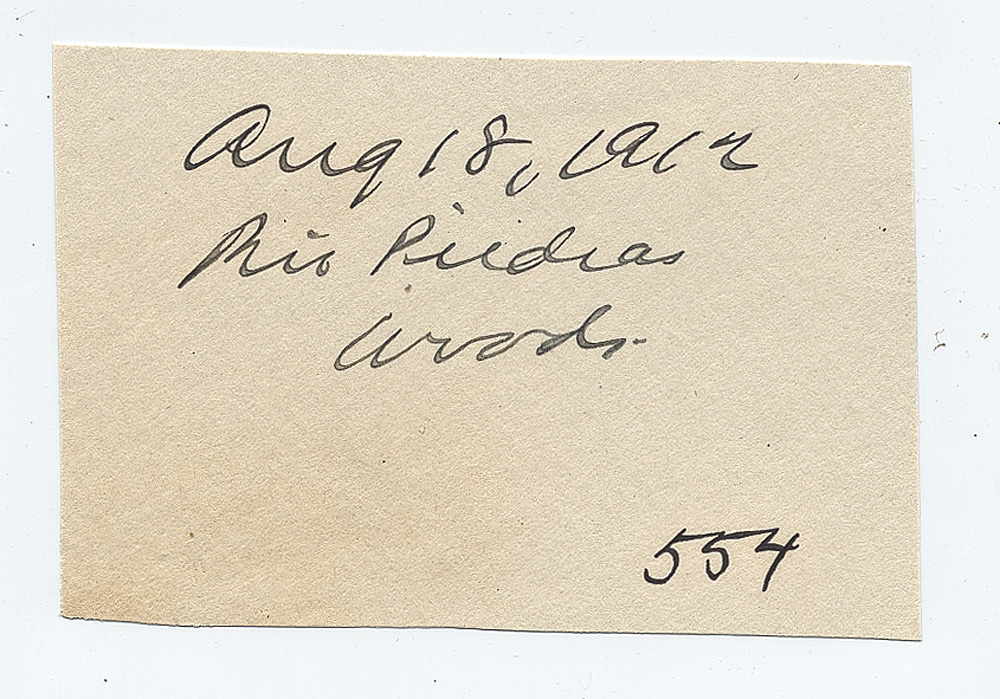 Aug 18, 1912
Rio Piedras
woods.
554